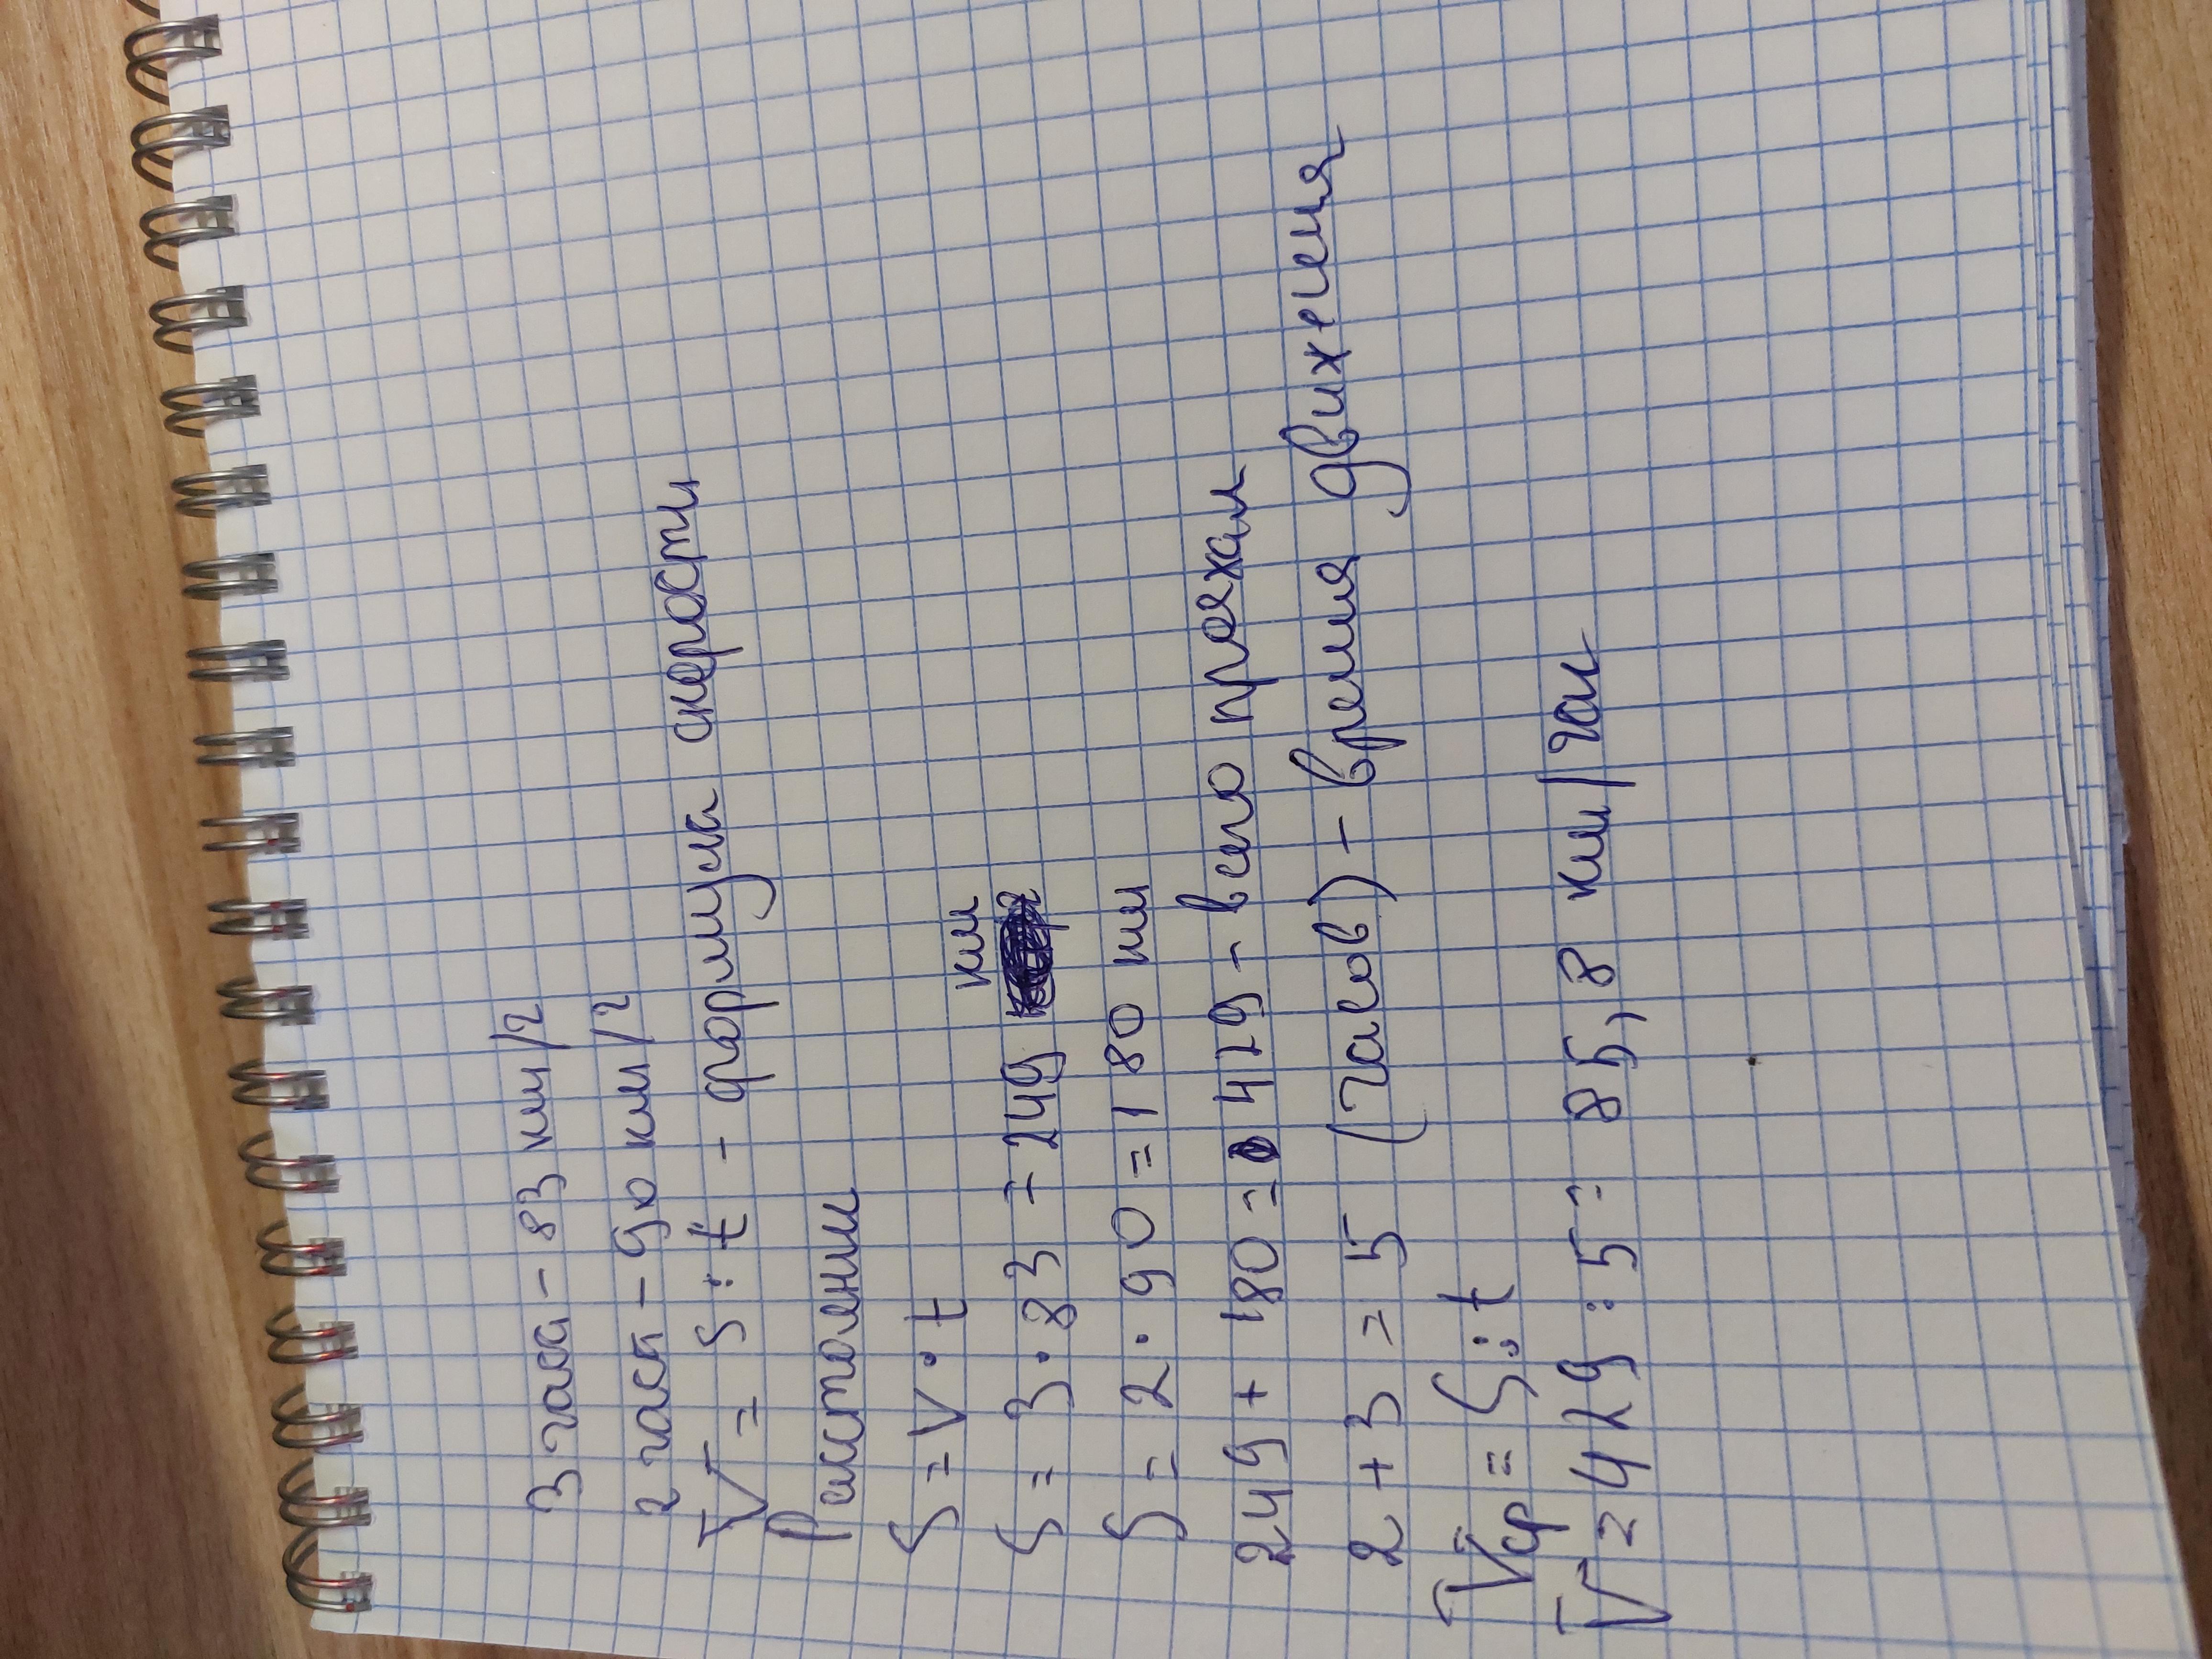 3 часа - 83 км/ч
2 часа - 90 км/ч
V = S : t - формула скорости
Расстояние
S = V · t
км
S = 3 · 83 = 249
S = 2 · 90 = 180 км
249 + 180 = 429 - всего проехал
2 + 3 = 5 (часов) - время движения
Vср = S : t
V = 429 : 5 = 85,8 км/час